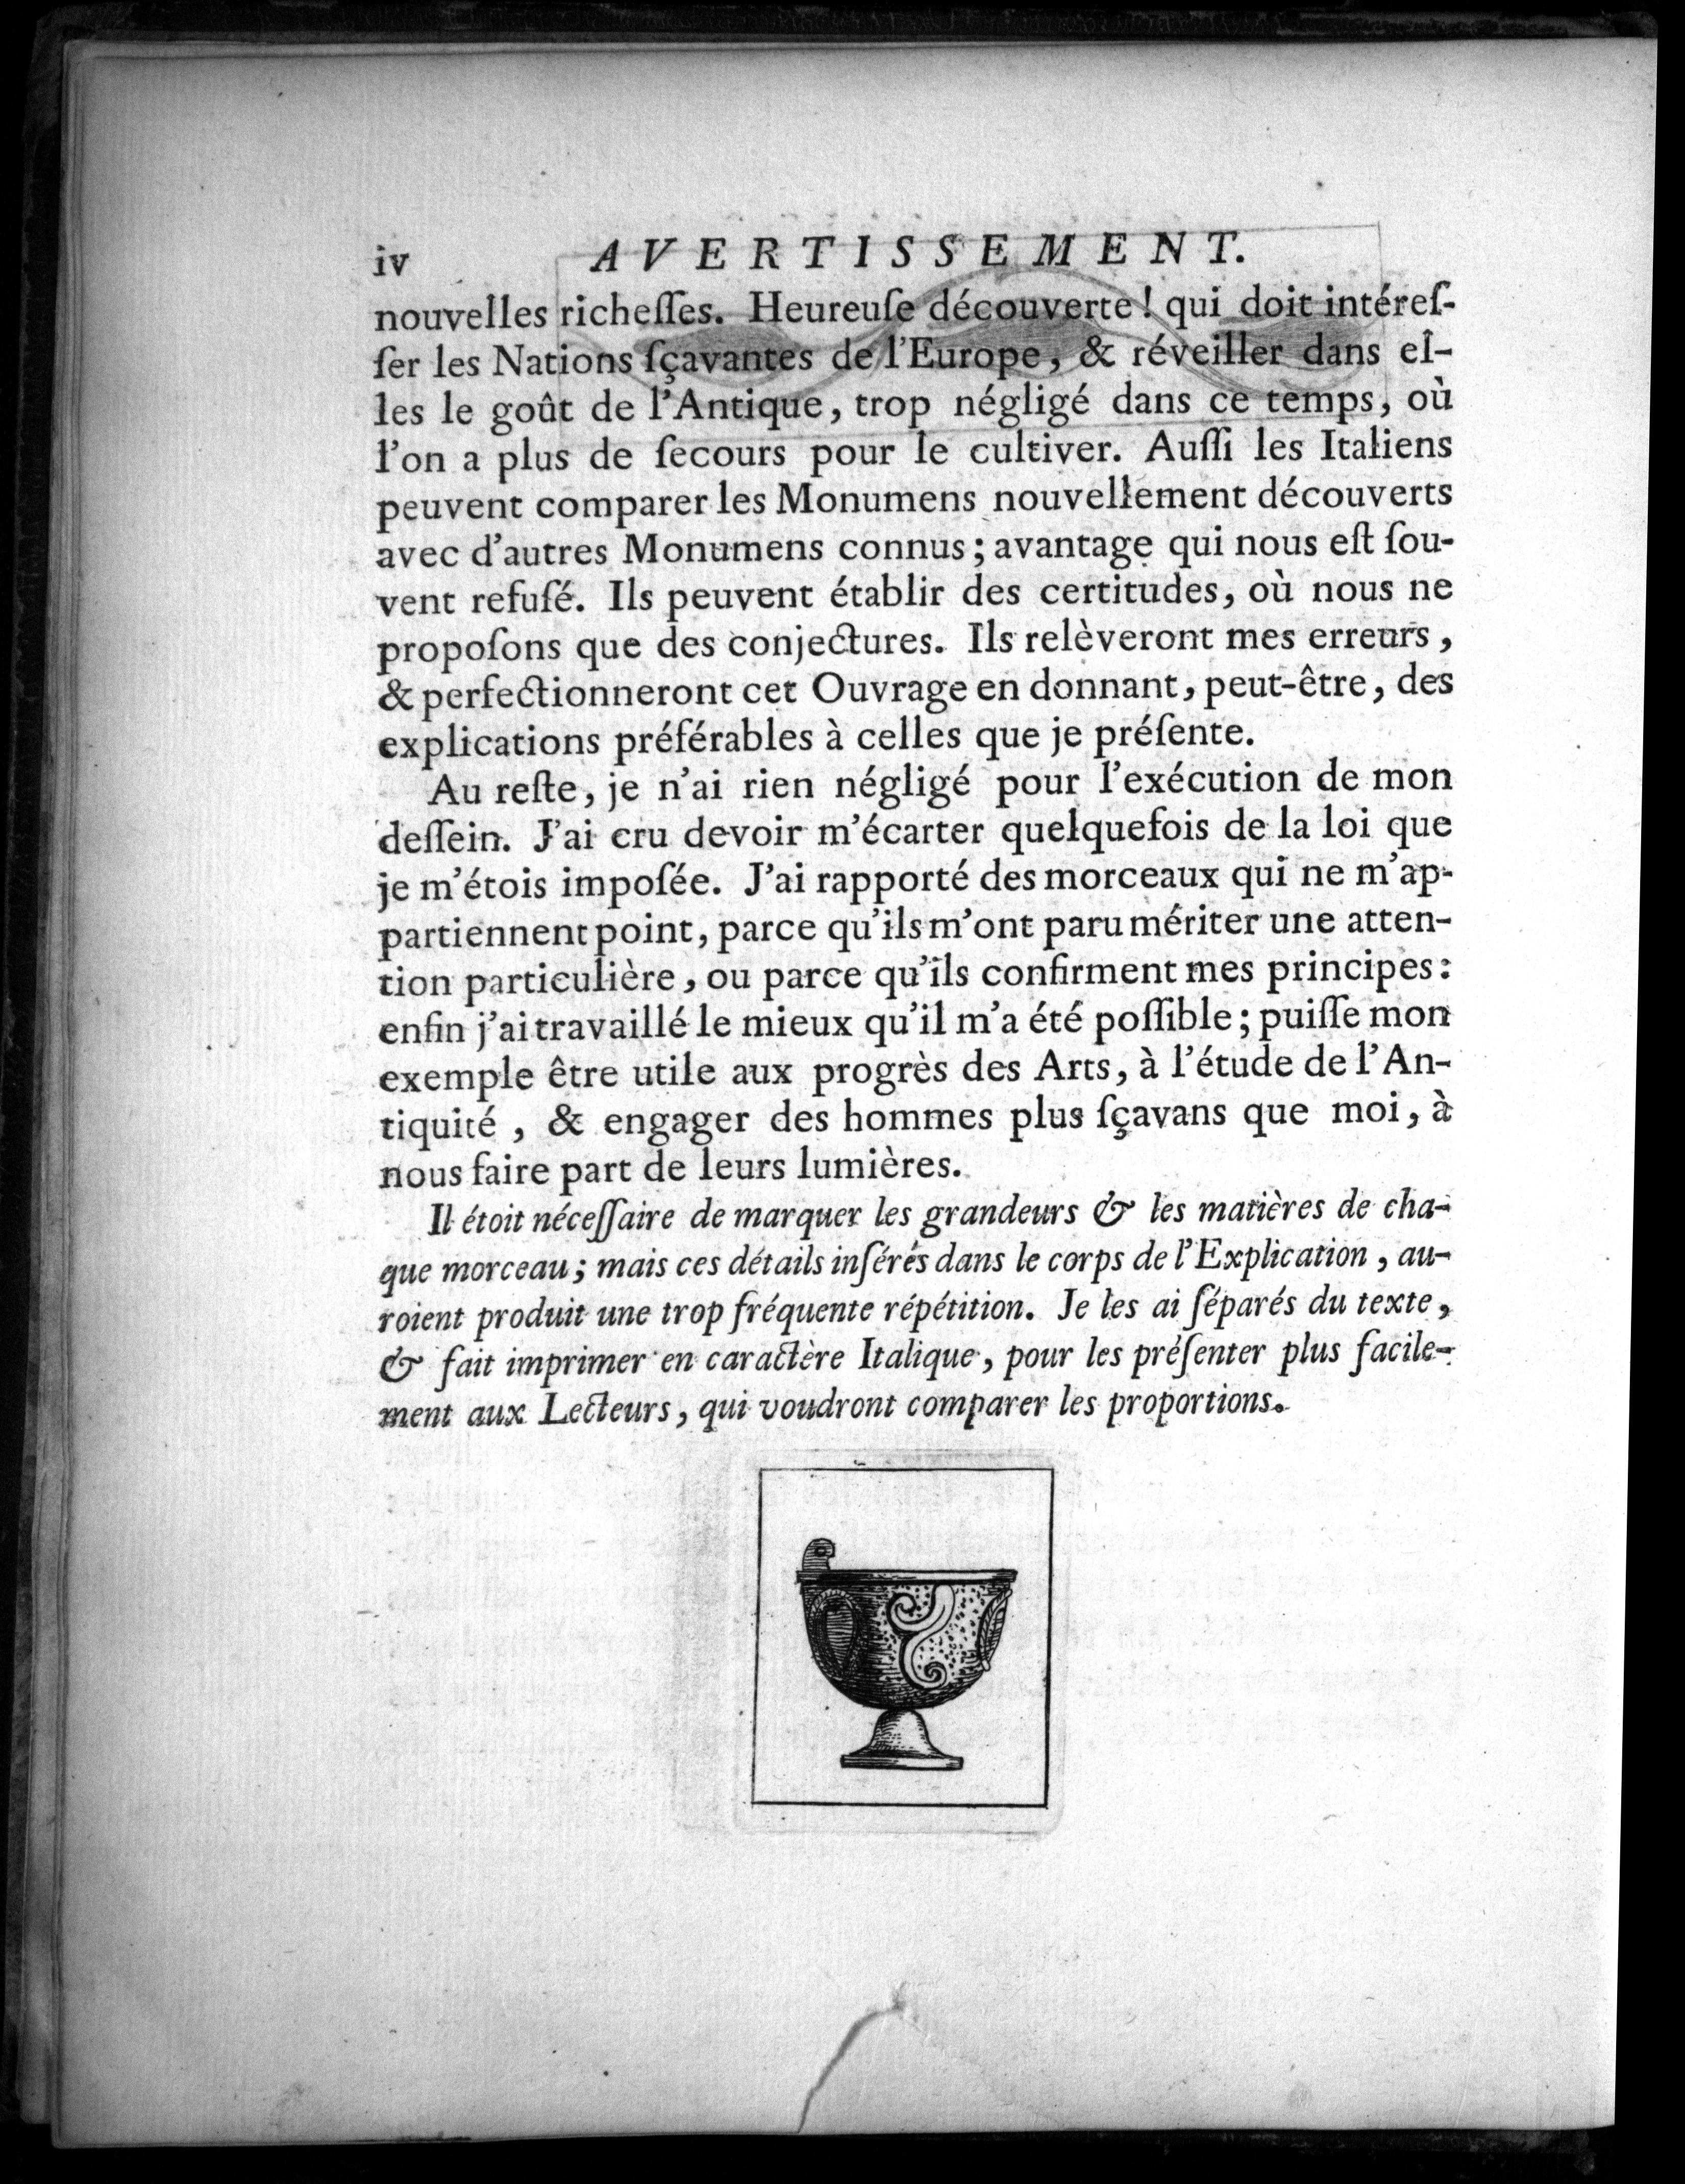 iv AVERTISSEMENT.
nouvelles richeſſes. Heureuſe découverte! qui doit intéreſ-
ſer les Nations ſçavantes de l'Europe, & réveiller dans el-
les le goût de l'Antique, trop négligé dans ce temps, où
l'on a plus de ſecours pour le cultiver. Auſſi les Italiens
peuvent comparer les Monumens nouvellement découverts
avec d'autres Monumens connus; avantage qui nous eſt ſou-
vent refuſé. Ils peuvent établir des certitudes, où nous ne
propoſons que des conjectures. Ils relèveront mes erreurs,
& perfectionneront cet Ouvrage en donnant, peut-être, des
explications préférables à celles que je préſente.
Au reſte, je n'ai rien négligé pour l'exécution de mon
deſſein. J'ai cru devoir m'écarter quelquefois de la loi que
je m'étois impoſée. J'ai rapporté des morceaux qui ne m'ap-
partiennent point, parce qu'ils m'ont paru mériter une atten-
tion particulière, ou parce qu'ils confirment mes principes:
enfin j'ai travaillé le mieux qu'il m'a été poſſible; puiſſe mon
exemple être utile aux progrès des Arts, à l'étude de l'An-
tiquité, & engager des hommes plus ſçavans que moi, à
nous faire part de leurs lumières.
Il étoit néceſſaire de marquer les grandeurs & les matières de cha-
que morceau; mais ces détails inſérés dans le corps de l'Explication, au-
roient produit une trop fréquente répétition. Je les ai ſéparés du texte,
& fait imprimer en caractère Italique, pour les préſenter plus facile-
ment aux Lecteurs, qui voudront comparer les proportions.